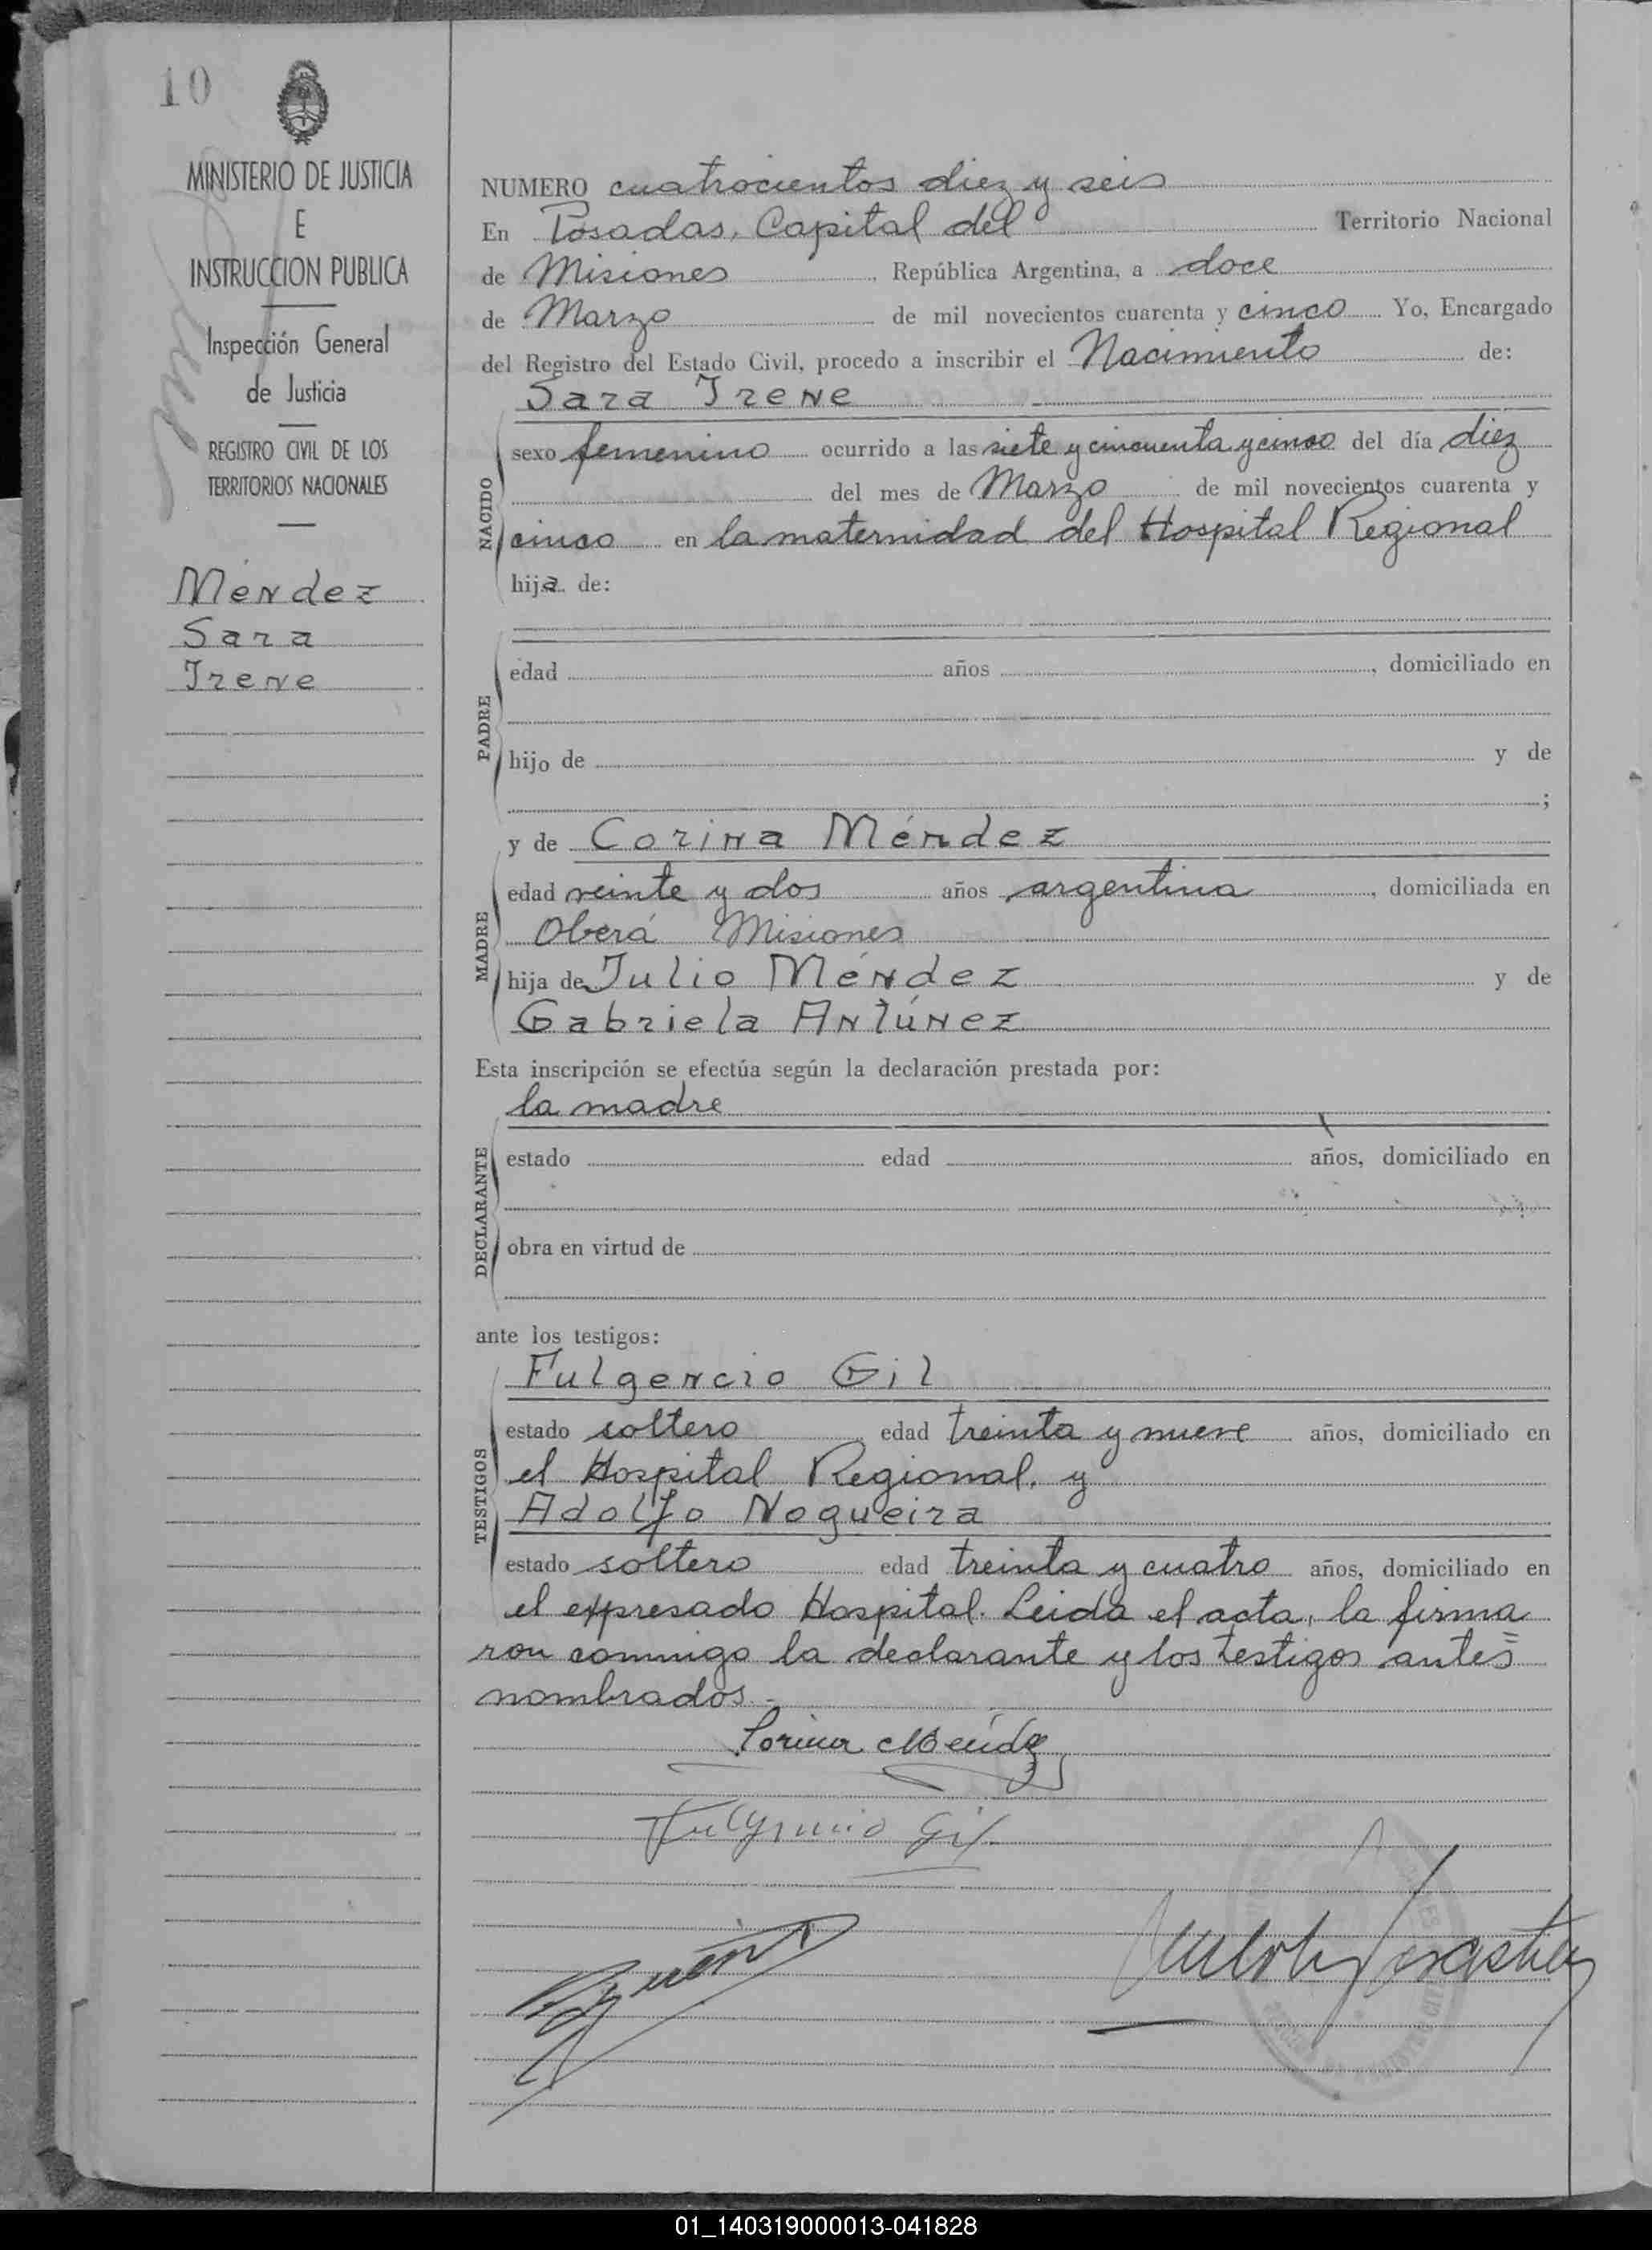 10
MINISTERIO DE JUSTICIA
E
INSTRUCCION PUBLICA
Inspección General
de Justicia
REGISTRO CIVIL DE LOS
TERRITORIOS NACIONALES
Méndez
Sara
Irene
NUMERO cuatrocientos diez y seis
En Posadas, Capital del Territorio Nacional
de Misiones, República Argentina, a doce
de Marzo de mil novecientos cuarenta y cinco Yo, Encargado
del Registro del Estado Civil, procedo a inscribir el Nacimiento de:
Sara Irene
NACIDO
sexo femenino ocurrido a las siete y cincuenta y cinco del día diez
del mes de Marzo de mil novecientos cuarenta y
cinco en la maternidad del Hospital Regional
hija de:
PADRE
edad años , domiciliado en
hijo de y de
;
y de Corina Méndez
MADRE
edad veinte y dos años argentina, domiciliada en
Oberá Misiones
hija de Julio Méndez y de
Gabriela Antúnez
Esta inscripción se efectúa según la declaración prestada por:
la madre
DECLARANTE
estado edad años, domiciliado en
obra en virtud de
ante los testigos:
Fulgencio Gil
TESTIGOS
estado soltero edad treinta y nueve años, domiciliado en
el Hospital Regional, y
Adolfo Nogueira
estado soltero edad treinta y cuatro años, domiciliado en
el expresado Hospital. Leida el acta, la firma
ron conmigo la declarante y los testigos antes
nombrados.-
Corina Méndez
Fulgencio Gil
01_140319000013-041828